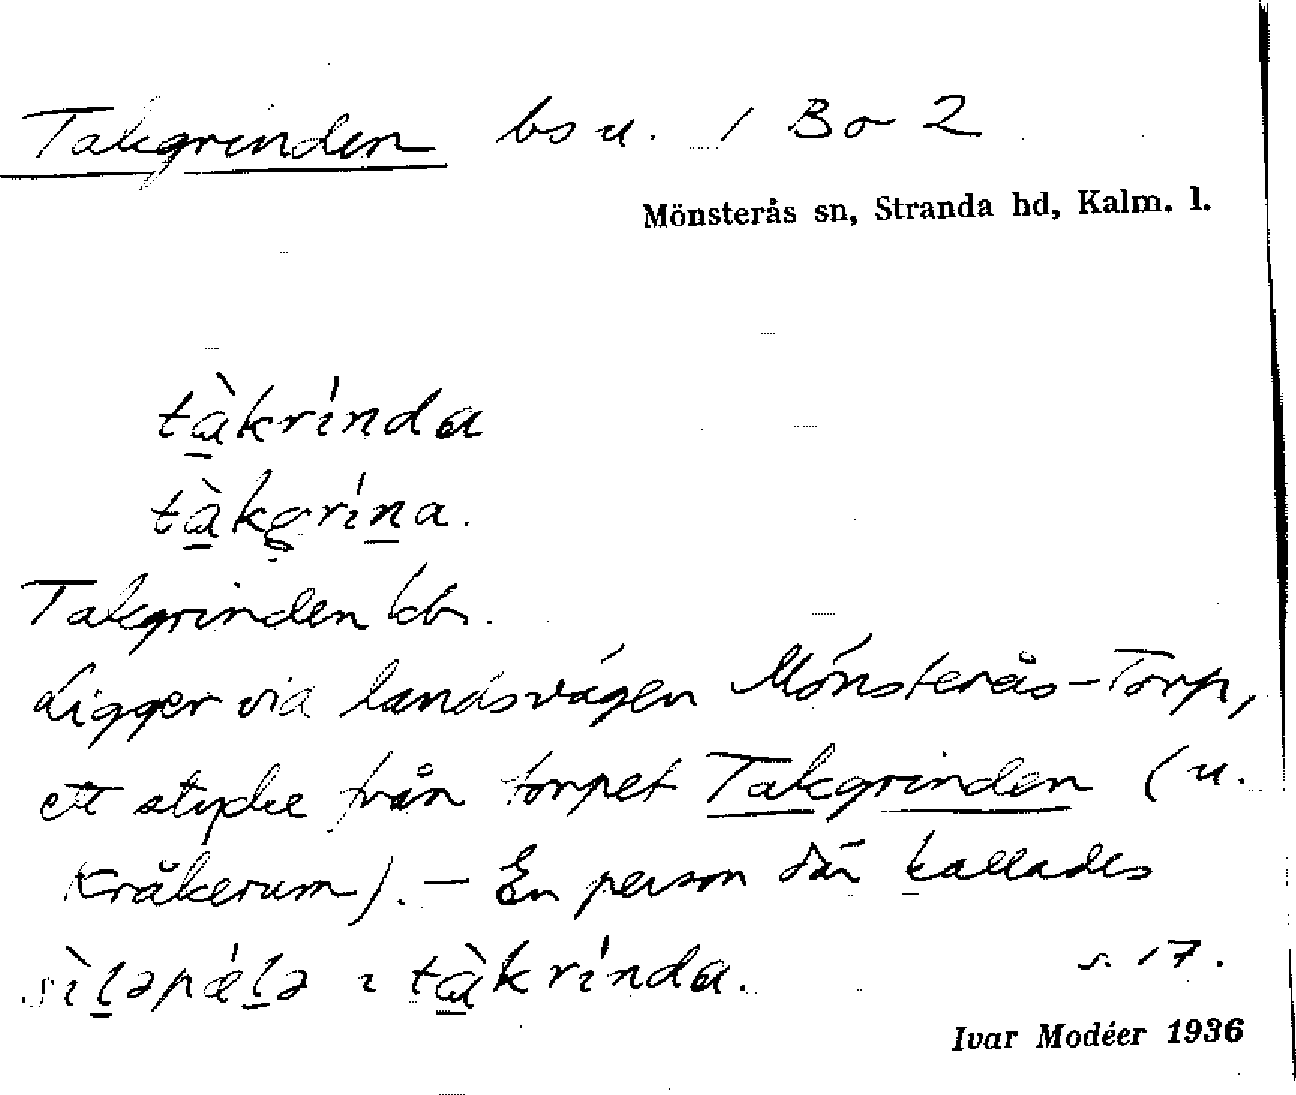 Takgrinden bs u. / Bo 2
Mönsterås sn, Stranda hd, Kalm. l.
tàkrínda
tàkgrína.
Takgrinden kb.
Ligger via landsvägen Mönsterås-Torp,
ett stycke från torpet Takgrinden (u.
Kråkerum). – En person där kallades
sìləpélə ı tàkrínda.
s. 17.
Ivar Modéer 1936